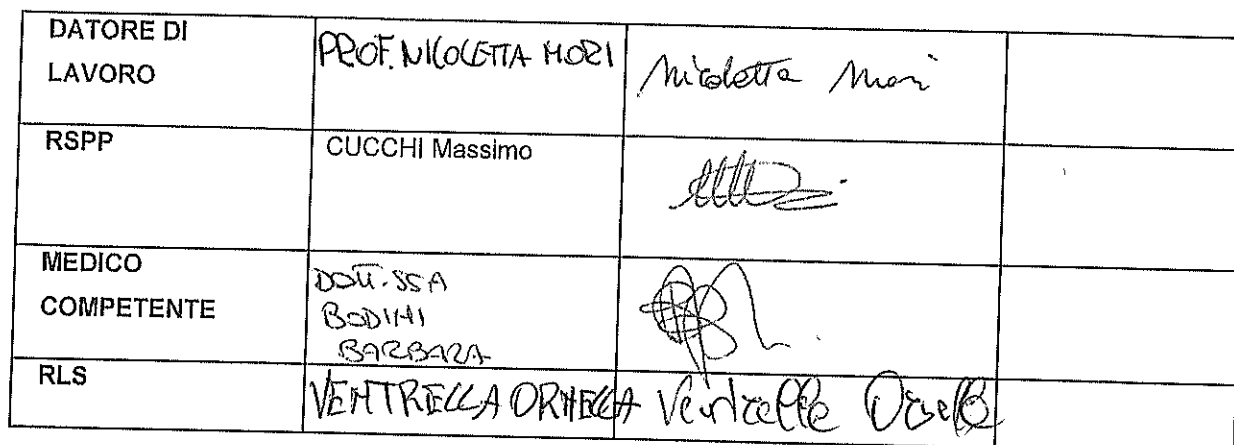 DATORE DI
LAVORO
PROF. NICOLETTA MORI
Nicoletta Mori
RSPP
CUCCHI Massimo
MEDICO
COMPETENTE
DOTT.SSA
BODINI
BARBARA
RLS
VENTRELLA ORNELLA
Ventrella Ornella